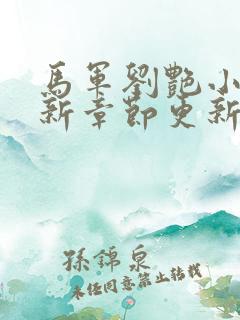 馬軍劉艷小
新章節更新
孫錦泉
未經同意禁止轉載